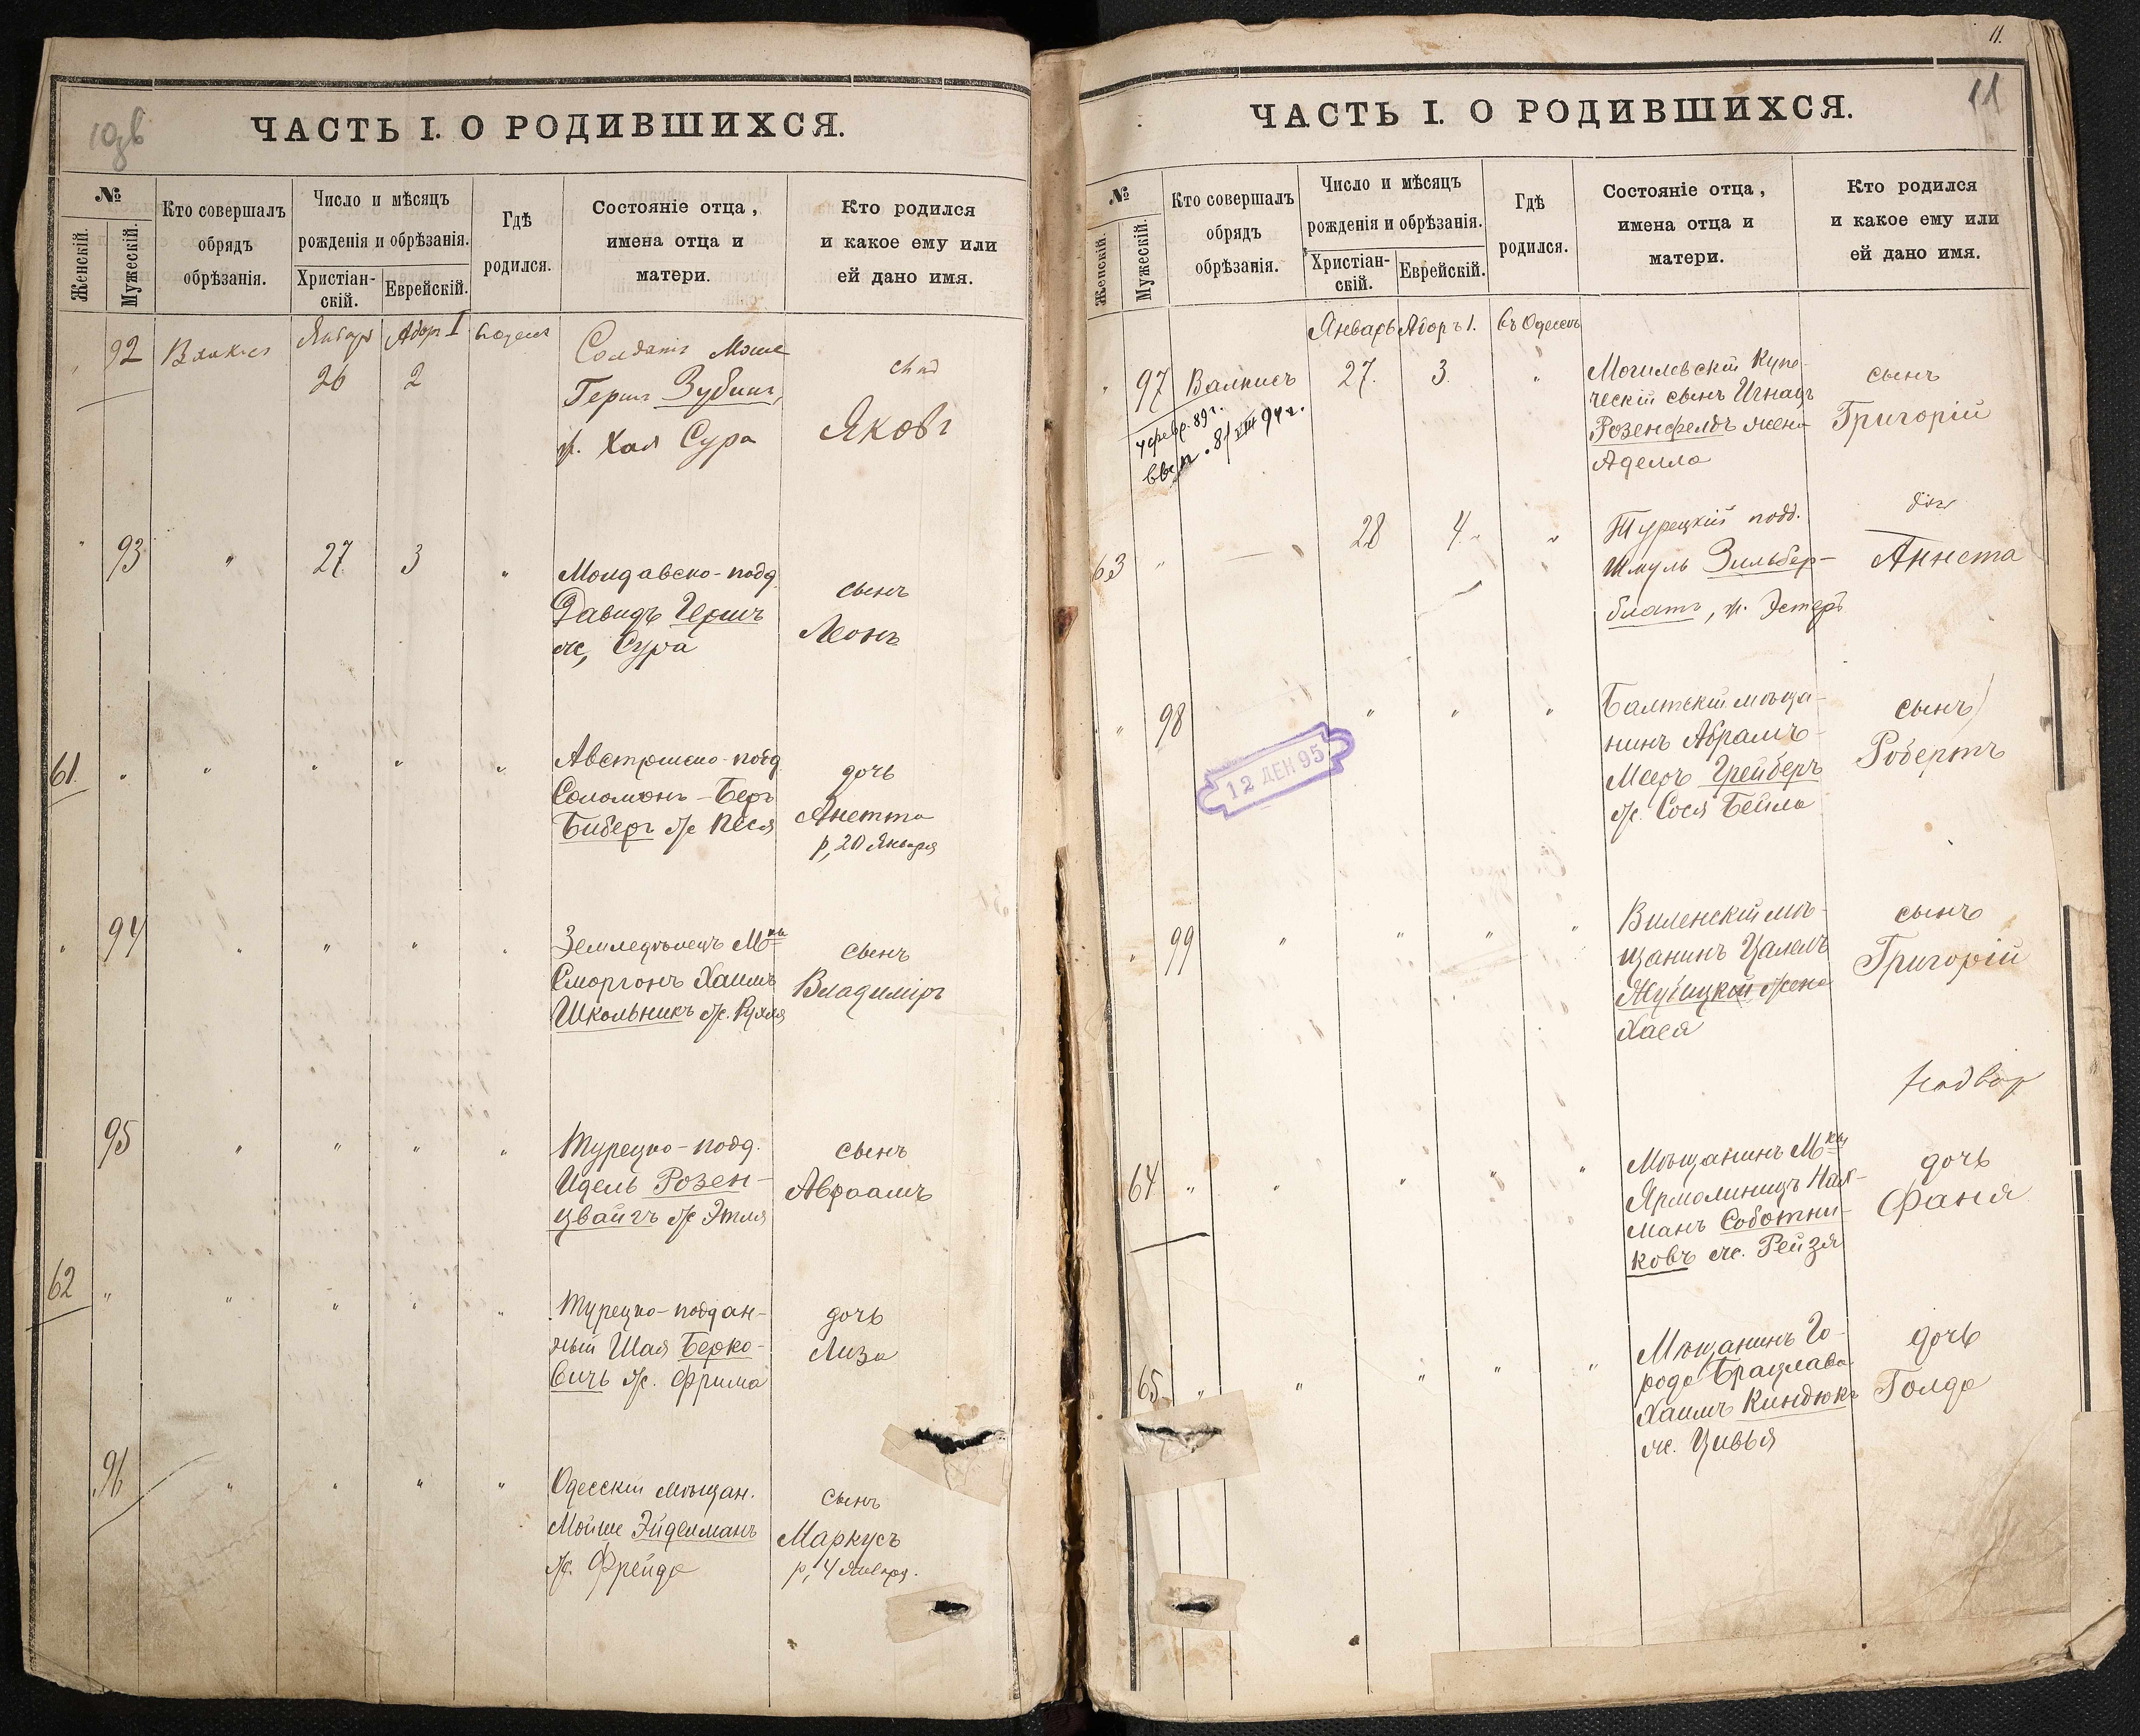 ЧАСТЬ I. О РОДИВШИХСЯ.
№
Женскій.
Мужескій.
Кто совершалъ
обрядъ
обрѣзанія.
Число и мѣсяцъ
рожденія и обрѣзанія.
Христіан-
скій.
Еврейскій.
Гдѣ
родился.
Состояніе отца,
имена отца и
матери.
Кто родился
и какое ему или
ей дано имя.
92
Январь Адоръ I
26 2
Солдатъ Моше
Гершъ Зубинъ,
ж. Хая Сура
сынъ
Яковъ
" 93 " 27 3 "
Молдавско-подд.
Давидъ Гершъ
ж, Сура
сынъ
Леонъ
61. " " " " "
Австрийско-подд
Соломонъ-Беръ
Биберъ ж Песя
дочь
Анетта
р, 20 Января
" 94 " " " "
Земледѣлецъ Мки
Сморгонъ Хаимъ
Школьникъ ж. Рухля
сынъ
Владиміръ
95 " " " "
Турецко-подд.
Идель Розен-
цвайгъ ж Этля
сынъ
Авраамъ
62 " " " " "
Турецко-поддан-
ный Шая Берко-
вичъ ж. Фрима
дочь
Лиза
96 " " " "
Одесскій мѣщан.
Мойше Эйделманъ
ж. Фрейда
сынъ
Маркусъ
р, 4 Января.
11.
11
ЧАСТЬ I. О РОДИВШИХСЯ.
№
Женскій.
Мужескій.
Кто совершалъ
обрядъ
обрѣзанія.
Число и мѣсяцъ
рожденія и обрѣзанія.
Христіан-
скій.
Еврейскій.
Гдѣ
родился.
Состояніе отца,
имена отца и
матери.
Кто родился
и какое ему или
ей дано имя.
Январь Адоръ I. въ Одессѣ
" 97 Валкисъ 27. 3. "
Могилевскій купе-
ческій сынъ Игнацъ
Розенфелдъ жена
Аделла
сынъ
Григорій
63 " 28 4 "
Турецкій подд.
Шмуль Зильбер-
блатъ, ж. Эстеръ
Аннета
" 98 " " "
Балтскій мѣща-
нинъ Абрамъ-
Мееръ Грейберъ
ж. Сося Бейла
сынъ
Робертъ
12 ДЕК 95
" 99 " " " "
Виленскій мѣ-
щанинъ Цалелъ
жена
Хася
сынъ
Григорій
64 " " " " "
Мѣщанинъ Мки
Ярмолинцъ Нах-
манъ Соботни-
ковъ ж. Рейзя
дочь
Фаня
65 " " " " "
Мѣщанинъ Го-
рода Брацлава
Хаимъ Киндюкъ
ж. Цивья
дочь
Голда